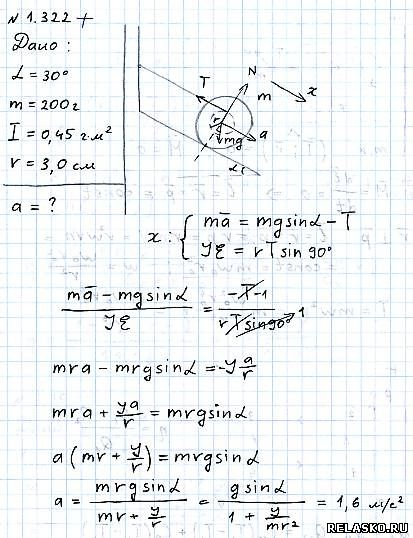 № 1.322 +
Дано:
α = 30°
m = 200 г
I = 0,45 г·м²
r = 3,0 см
a = ?
T
N
m
x
r
mg
a
α
x: { mā = mg sinα − T
Jξ = rT sin 90°
mā − mg sinα / Jξ = −T·1 / rT sin 90° 1
mra − mrg sinα = −J a/r
mra + Ja/r = mrg sinα
a (mr + J/r) = mrg sinα
a = mrg sinα / mr + J/r = g sinα / 1 + J/mr² = 1,6 м/с²
RELASKO.RU